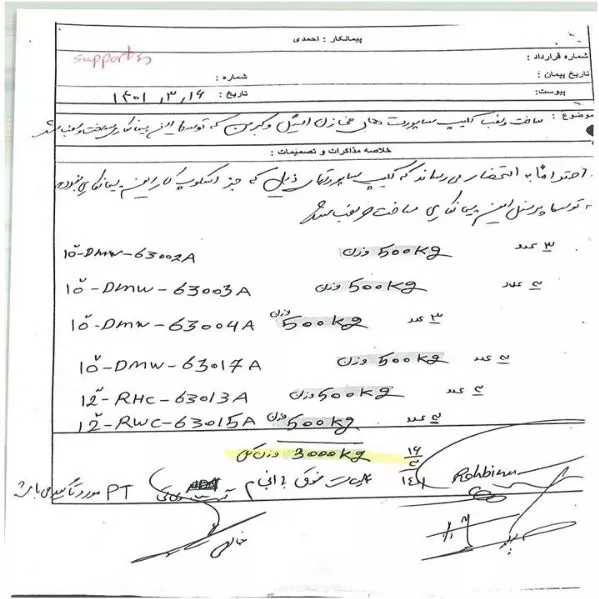 پیمانکار : احمدی
supports
شماره قرارداد :
تاریخ پیمان :
شماره :
پیوست:
تاریخ : ۱۴۰۱,۳,۱۶
موضوع : ساخت و نصب کلیپ ساپورت های مخازن که توسط این پیمانکاری ساخت و نصب شد
خلاصه مذاکرات و تصمیمات :
احتراماً به استحضار می رساند که کلیپ ساپورتهای ذیل که جز اسکوپ کار این پیمانکاری نبوده
توسط پرسنل این پیمانکاری ساخت و نصب شد
10"-DMW-63002A وزن 500kg ۳ عدد
10"-DMW-63003A وزن 500kg عدد
10"-DMW-63004A وزن 500kg ۳ عدد
10"-DMW-63017A وزن 500kg عدد
12"-RHC-63013A وزن 500kg عدد
12"-RWC-63015A وزن 500kg عدد
وزن کل 3000kg
عملیات فوق با انجام تست PT مورد تأیید می باشد